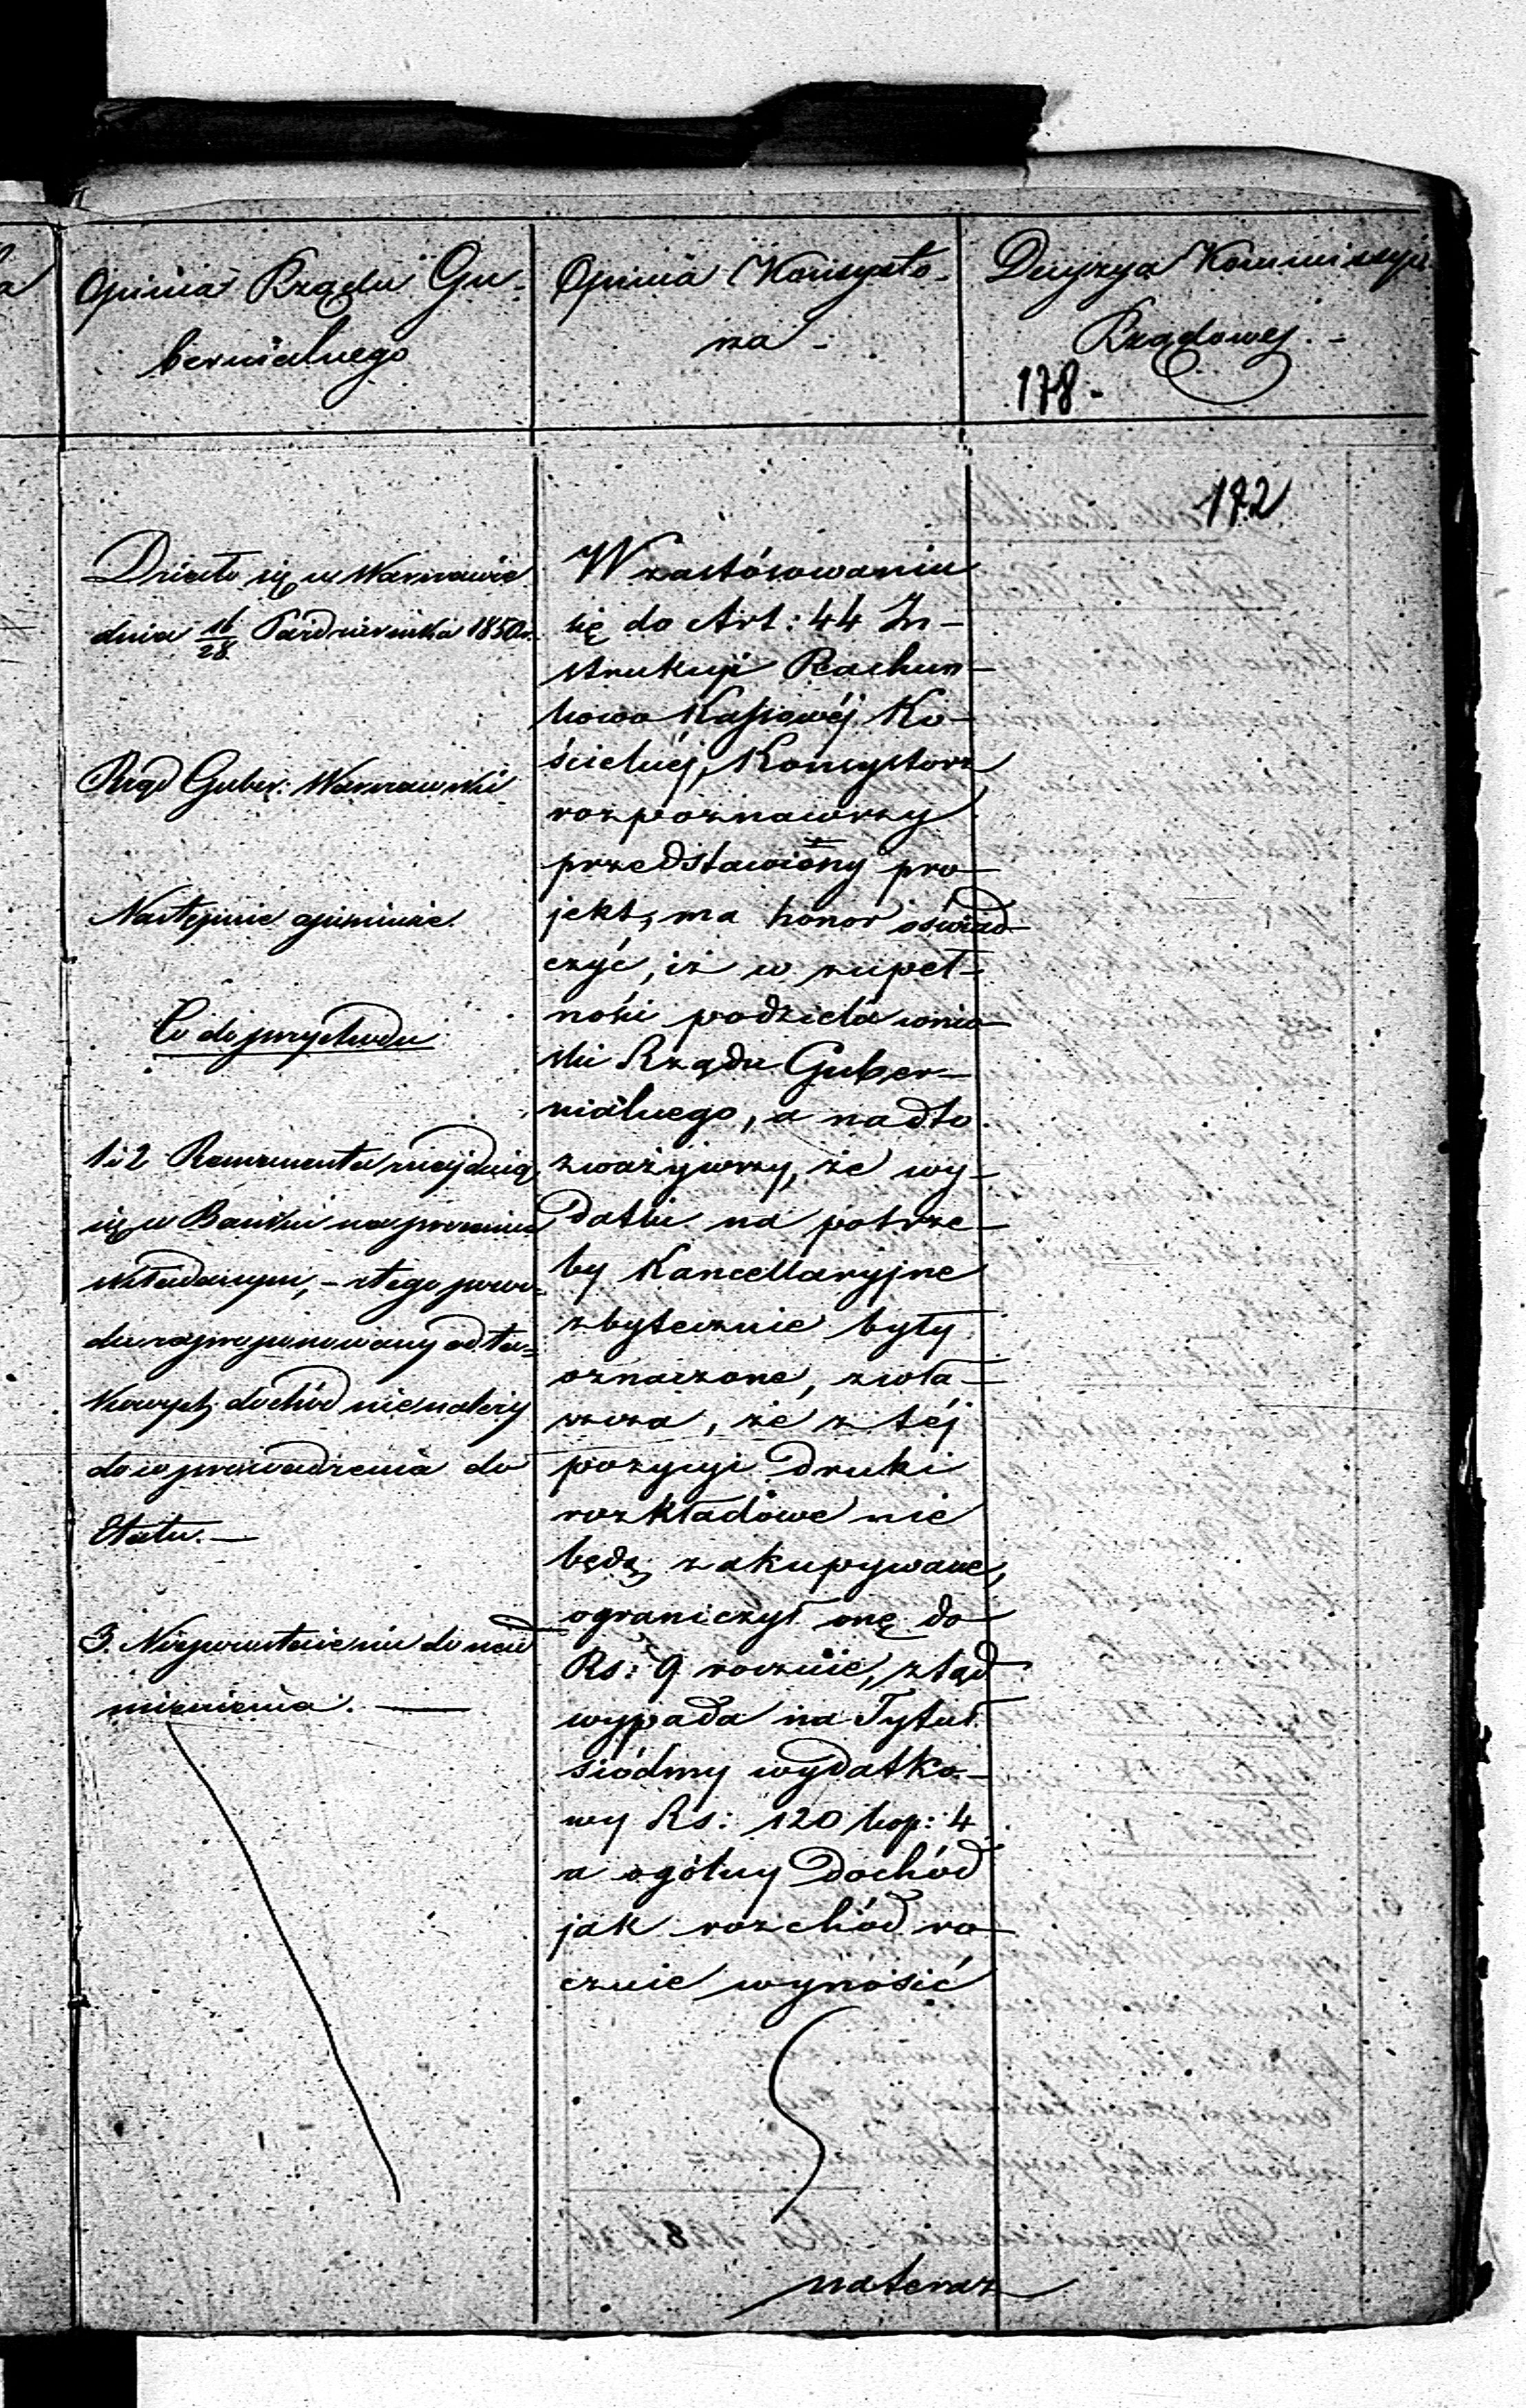 Opinia Rządu Gu-
bernialnego
Opinia Konsysto-
rza -
Decyzya Kommissyi
Rządowej. -
178 -
172
Działo się w Warszawie
dnia 16/28 Października 1850 r.
Rząd Guber: Warszawski
Następnie opiniuje.
Co do przychodu
1 i 2 Remanenta znajdują
się w Banku na procencie
składanym, - z tego powo-
du zaproponowany od ta-
kowych dochód nie należy
do wprowadzenia do
Etatu. —
3. Nie pozostaje nic do nad
mienienia. —
W zastósowaniu
się do Art: 44 In-
strukcji Rachun-
kowo Kassowéj Ko-
ścielnéj, Konsystorz
rozpoznawszy
przedstawiony pro-
jekt, ma honor oświad-
czyć, iż w zupeł-
ności podziela wnio-
ski Rządu Guber-
nialnego, a nadto
zważywszy, że wy-
datki na potrze-
by Kancellaryjne
zbytecznie były
oznaczone, zwła-
szcza, że z téj
pozycyi druki
rozkładowe nie
będą zakupywane,
ograniczył onę do
Rs: 9 rocznie, ztąd
wypada na Tytuł
siódmy wydatko-
wy Rs: 120 kop: 4
a ogólny dochód
jak rozchód ro-
cznie wynosić
nateraz